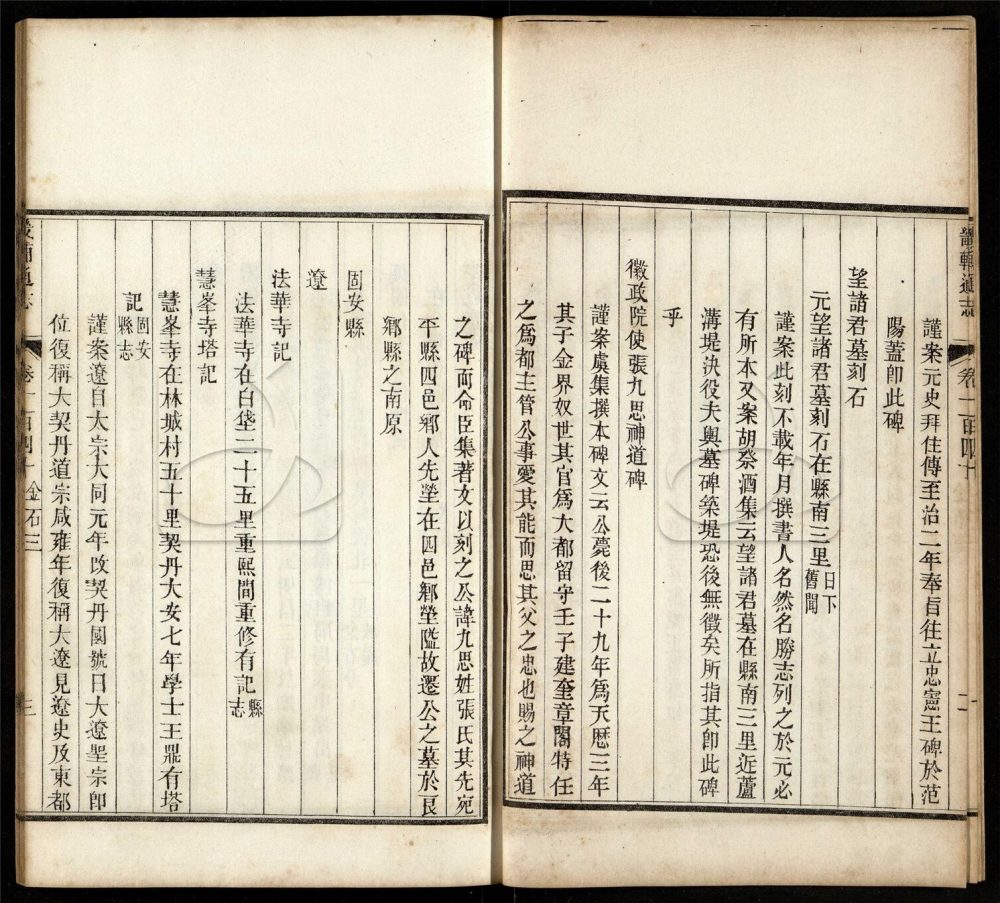 畿輔通志 卷一百四十 二
謹案元史拜住傳至治二年奉旨往立忠憲王碑於范
陽蓋卽此碑
望諸君墓刻石
元望諸君墓刻石在縣南三里日下舊聞
謹案此刻不載年月撰書人名然名勝志列之於元必
有所本又案胡祭酒集云望諸君墓在縣南三里近蘆
溝堤決役夫輿墓碑築堤恐後無徵矣所指其卽此碑
乎
徽政院使張九思神道碑
謹案虞集撰本碑文云公薨後二十九年爲天厯三年
其子金界奴世其官爲大都留守壬子建奎章閣特任
之爲都主管公事愛其能而思其父之忠也賜之神道
之碑而命臣集著文以刻之公諱九思姓張氏其先宛
平縣四邑鄉人先塋在四邑鄉塋隘故遷公之墓於良
鄉縣之南原
固安縣
遼
法華寺記
法華寺在白垡二十五里重熙間重修有記縣志
慧峯寺塔記
慧峯寺在林城村五十里契丹大安七年學士王鼎有塔
記固安縣志
謹案遼自大宗大同元年改契丹國號曰大遼聖宗卽
位復稱大契丹道宗咸雍年復稱大遼見遼史及東都
畿輔通志 卷一百四十 金石三 三